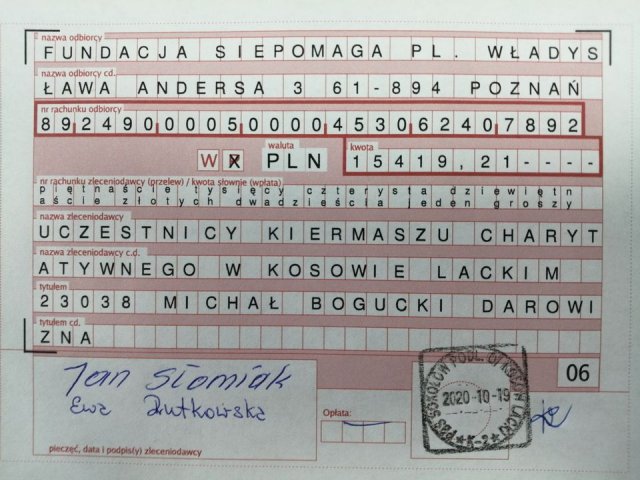 nazwa odbiorcy
FUNDACJA SIEPOMAGA PL. WŁADYS
nazwa odbiorcy cd.
ŁAWA ANDERSA 3 61-894 POZNAŃ
nr rachunku odbiorcy
89249000050000453062407892
waluta
kwota
W X PLN 15419,21----
nr rachunku zleceniodawcy (przelew) / kwota słownie (wpłata)
piętnaście tysięcy czterysta dziewiętn
aście złotych dwadzieścia jeden groszy
nazwa zleceniodawcy
UCZESTNICY KIERMASZU CHARYT
nazwa zleceniodawcy c.d.
ATYWNEGO W KOSOWIE LACKIM
tytułem
23038 MICHAŁ BOGUCKI DAROWI
tytułem cd.
ZNA
06
Jan Słomiak
Ewa Rutkowska
2020-10-19
K-2
Opłata:
pieczęć, data i podpis(y) zleceniodawcy